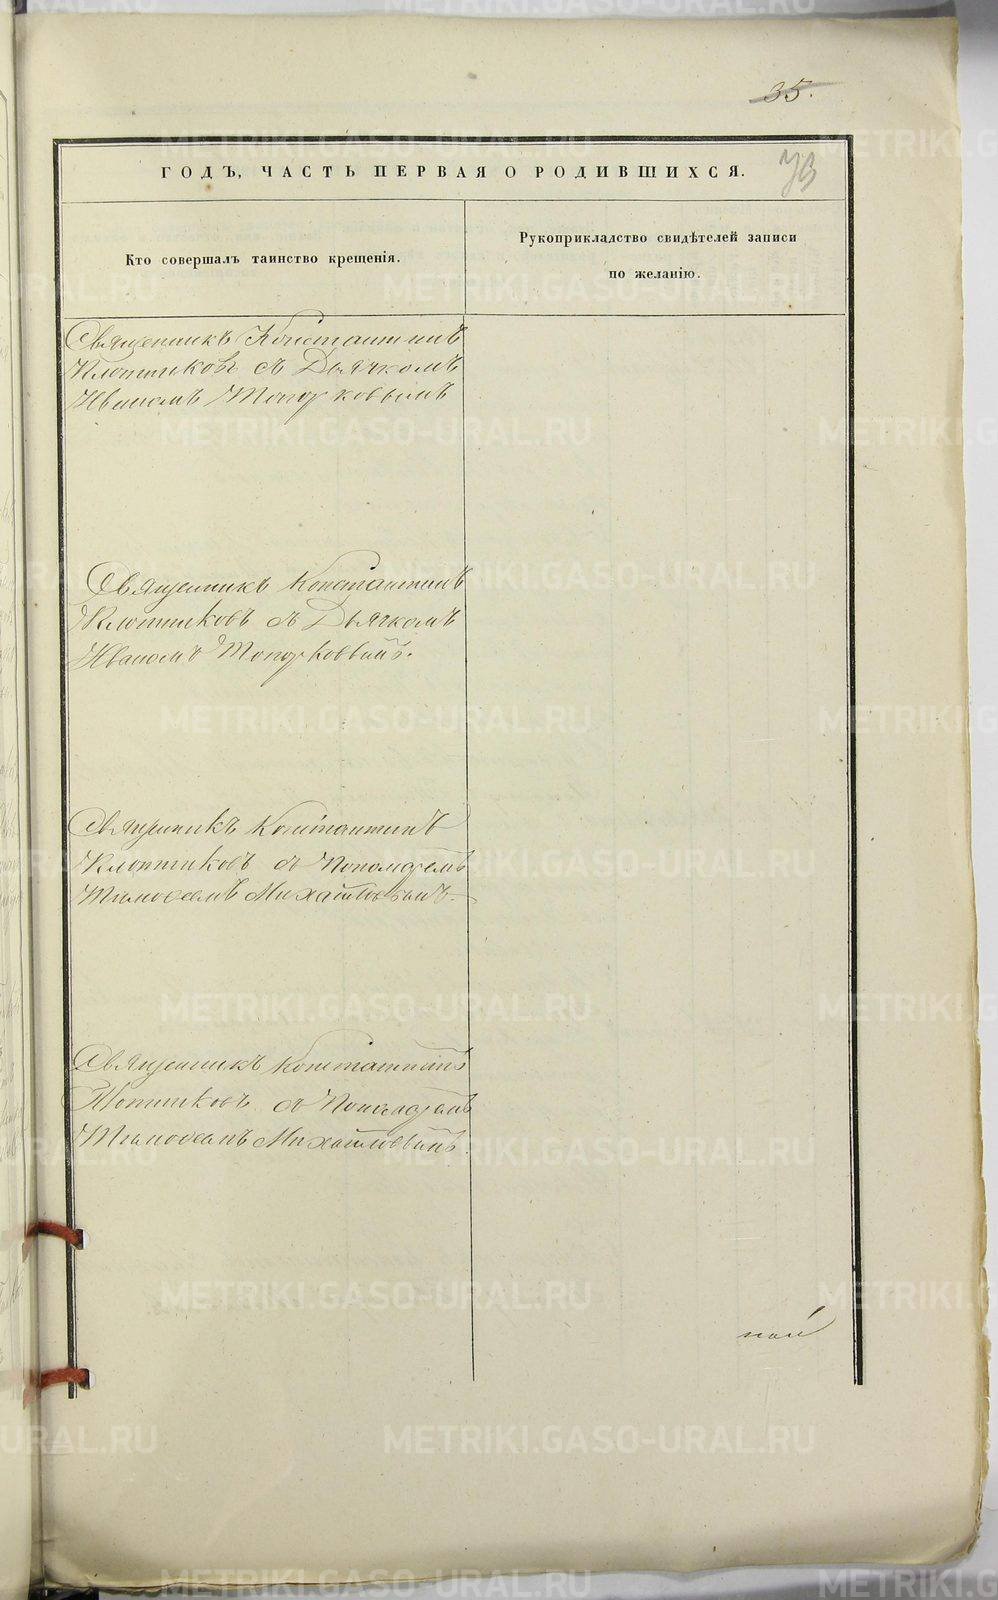 35.
ГОДЪ, ЧАСТЬ ПЕРВАЯ О РОДИВШИХСЯ.
Кто совершалъ таинство крещенія.
Рукоприкладство свидѣтелей записи
по желанію.
Священникъ Константинъ
Плотниковъ съ Дьячкомъ
Иваномъ Топорковымъ
Священникъ Константинъ
Плотниковъ съ Дьячкомъ
Иваномъ Топорковымъ.
Священникъ Константинъ
Плотниковъ съ Пономаремъ
Тимофеемъ Михайловымъ.
Священникъ Константинъ
Плотниковъ съ Пономаремъ
Тимофеемъ Михайловымъ.
ной
METRIKI.GASO-URAL.RU